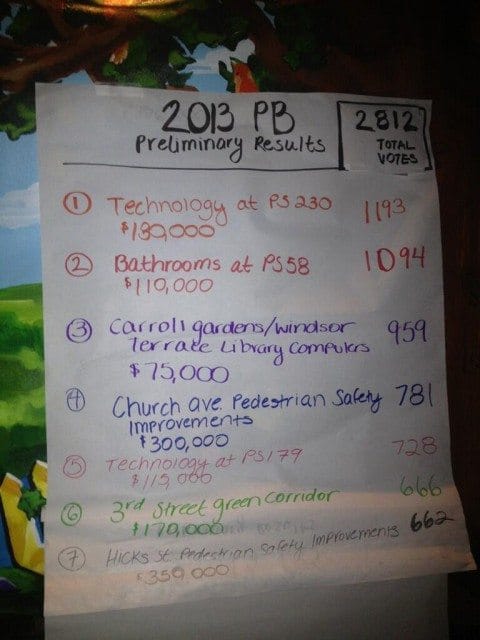 2013 PB
Preliminary Results
2812
TOTAL
VOTES
1 Technology at PS 230 1193
$180,000
2 Bathrooms at PS58 1094
$110,000
3 Carroll gardens/windsor 959
Terrace Library Computers
$75,000
4 Church ave. Pedestrian Safety 781
Improvements
$300,000
5 Technology at PS179 728
$115,000
6 3rd Street green corridor 666
$170,000
7 Hicks St. Pedestrian Safety Improvements 662
$350,000